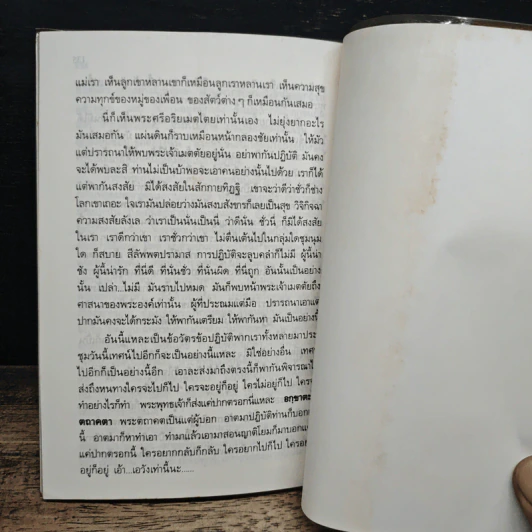 แม่เรา เห็นลูกเขาหลานเขาก็เหมือนลูกเราหลานเรา เห็นความสุข
ความทุกข์ของหมู่ของเพื่อน ของสัตว์ต่างๆ ก็เหมือนกันเสมอ
นี่ก็เห็นพระศรีอริยเมตไตยเท่านั้นเอง ไม่ยุ่งยากอะไร
มันเสมอกัน แผ่นดินก็ราบเหมือนหน้ากลองชัยเท่านั้น ให้มัว
แต่ปรารถนาให้พบพระเจ้าเมตตัยอยู่นั่น อย่าพากันปฏิบัติ มันคง
จะได้พบละสิ ท่านไม่เป็นบ้าพอจะเอาคนอย่างนั้นไปด้วย เราก็ได้
แต่พากันสงสัย มิได้สงสัยในสักกายทิฏฐิ เขาจะว่าดีว่าชั่วก็ช่าง
โลกเขาเถอะ ใจเรามันปล่อยวางมันสงบสังขารก็เลยเป็นสุข วิจิกิจฉา
ความสงสัยลังเล ว่าเราเป็นนั่นเป็นนี่ ว่าดีนั่น ชั่วนี่ ก็มิได้สงสัย
ในเรา เราดีกว่าเขา เราชั่วกว่าเขา ไม่ตื่นเต้นไปในกลุ่มใดชุมนุม
ใด ก็สบาย สีลัพพตปรามาส การปฏิบัติจะลูบคลำก็ไม่มี ผู้นี้น่า
ชัง ผู้นี้น่ารัก ที่นี่ดี ที่นั่นชั่ว ที่นั่นผิด ที่นี่ถูก อันนั้นเป็นอย่าง
นั้น เปล่า...ไม่มี มันราบไปหมด มันก็พบหน้าพระเจ้าเมตตัยถึง
ศาสนาของพระองค์เท่านั้น ผู้ที่ประณมแต่มือ ปรารถนาเอาแต่
ปากมันคงจะได้กระมัง ให้พากันเตรียม ให้พากันหา มันเป็นอย่างนี้
อันนี้แหละเป็นข้อวัตรข้อปฏิบัติพาเราทั้งหลายมาประ
ชุมวันนี้เทศน์ไปอีกก็จะเป็นอย่างนี้แหละ มิใช่อย่างอื่น เทศ
ไปอีกก็เป็นอย่างนี้อีก เอาละส่งมาถึงตรงนี้ก็พากันพิจารณา
ส่งถึงหนทางใครจะไปก็ไป ใครจะอยู่ก็อยู่ ใครไม่อยู่ก็ไป ใคร
ทำอย่างไรก็ทำ พระพุทธเจ้าก็ส่งแค่ปากตรอกนี้แหละ อกฺขาตา
ตถาคตา พระตถาคตเป็นแต่ผู้บอก อาตมาปฏิบัติท่านก็บอก
นี้ อาตมาก็หาทำเอา ทำมาแล้วเอามาสอนญาติโยมก็มาบอก
แค่ปากตรอกนี้ ใครอยากกลับก็กลับ ใครอยากไปก็ไป ใคร
อยู่ก็อยู่ เอ้า...เอวังเท่านี้นะ......